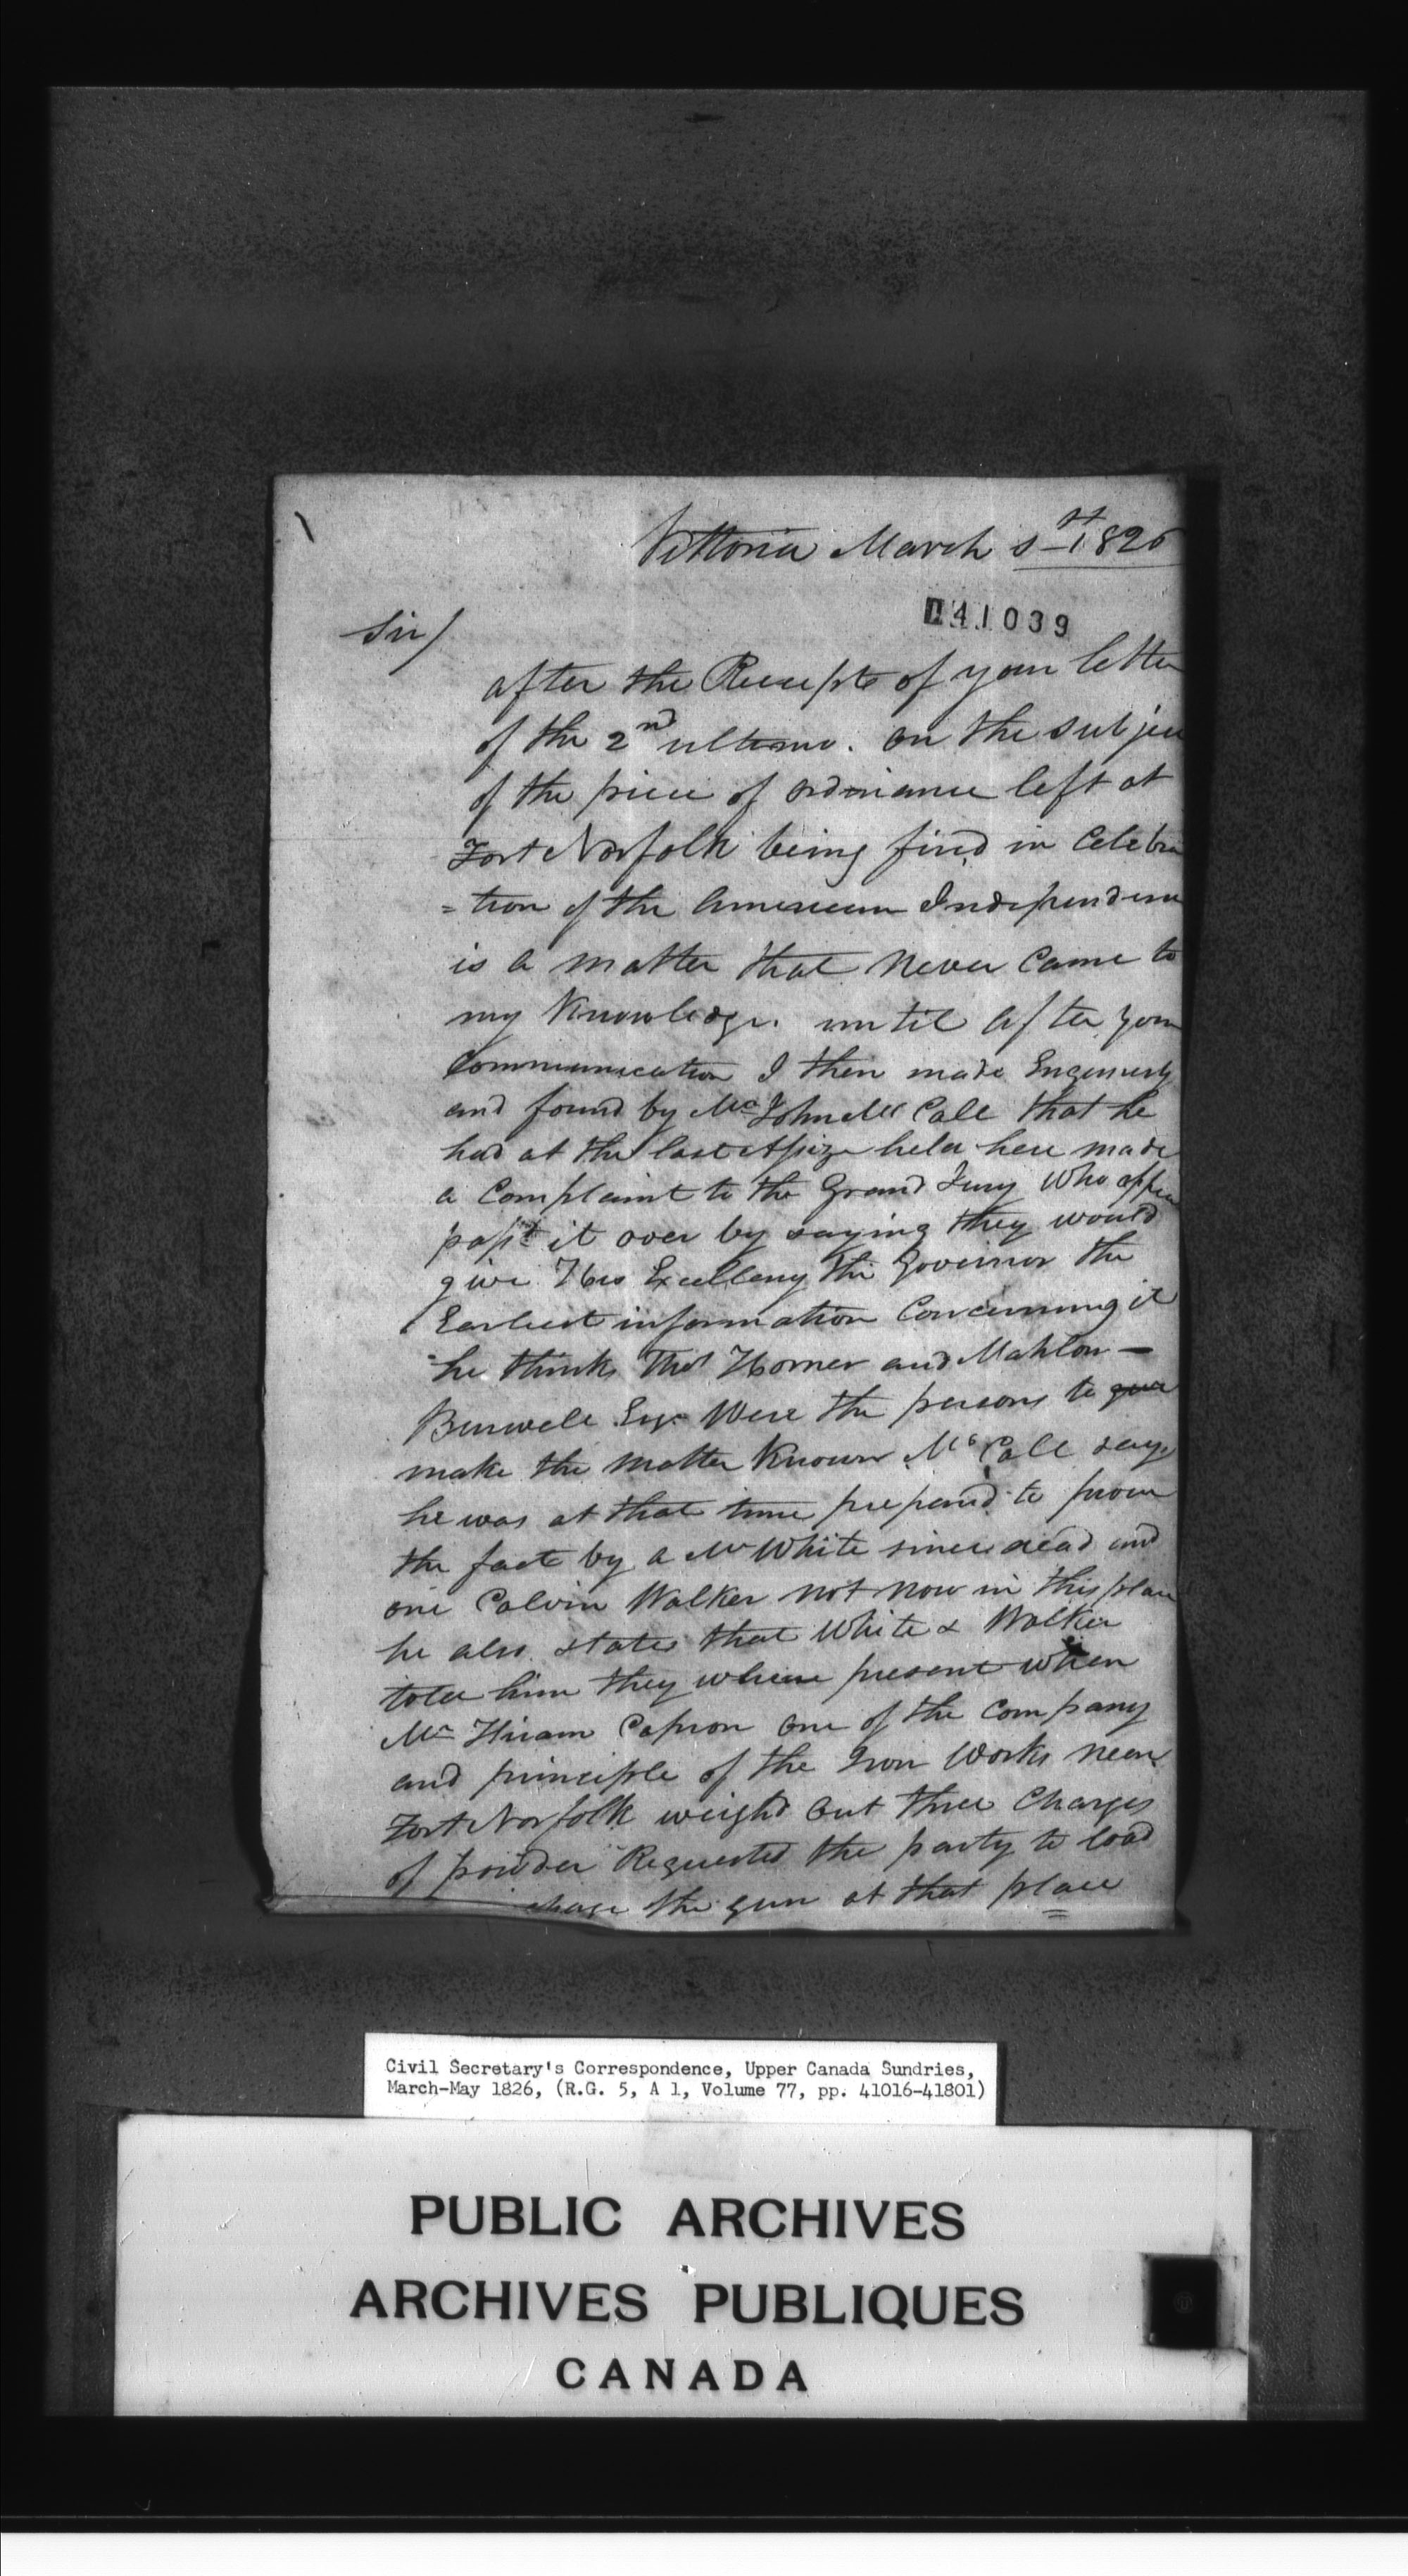 Vittoria March 1826
041039
Sir/
after the Receipte of your letter
of the 2nd ultimo. on the subjec
of the piece of ordinance left at
Fort Norfolk being fired in Celebra
= tion of the American Independenc
is a matter that never Came to
my Knowledge. until after your
Communication I then made
and found by Mr John Mc Call that he
had at the last Assize held here made
a Complaint to the Grand Jury Who
pass'd it over by saying they would
give His Excellency the Governor the
Earliest information Concerning it
he thinks Thos Horner and Mahlon —
Burwell Esqr Were the persons to give
make the matter Known Mc Call says
he was at that time prepared to prove
the fact by a Mr White since dead and
one Calvin Walker not now in this place
he also states that White & Walker
told him they where present when
Mr Hiram Capron one of the Company
and principle of the Iron Works near
Fort Norfolk weigh'd out three Charges
of powder Requested the party to load
the gun at that place
Civil Secretary's Correspondence, Upper Canada Sundries,
March-May 1826, (R.G. 5, A 1, Volume 77, pp. 41016-41801)
PUBLIC ARCHIVES
ARCHIVES PUBLIQUES
CANADA